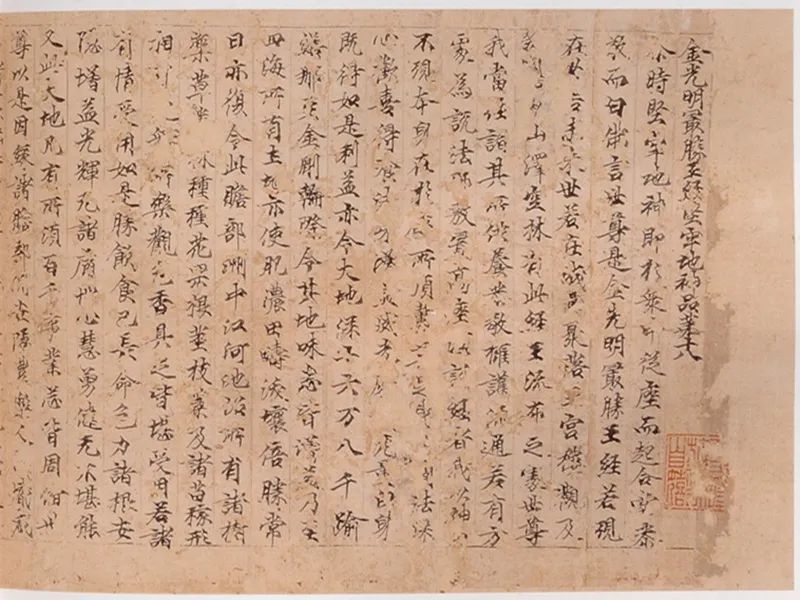 金光明最勝王經堅牢地神品第十八
尒時堅牢地神即於衆中從座而起合掌恭
敬而白佛言世尊是金光明最勝王經若現
在世若未來世若在城邑聚落王宮樓觀及
山澤空林有此經王流布之處世尊
我當往詣其所供養恭敬擁護流通若有方
處為說法師敷置高座演說經者我以神力
不現本身在於座所頂戴法深
心歡喜得飡法味增益威光自身
既得如是利益亦令大地深十六万八千踰
繕那至金剛輪際令其地味悉皆增益乃至
四海所有土地亦使肥濃田疇沃壤倍勝常
日亦復令此贍部洲中江河池沼所有諸樹
藥草林種種花果根莖枝葉及諸苗稼形
相所樂觀色香具足皆堪受用若諸
有情受用如是勝飲食已長命色力諸根安
隱增益光輝无諸痛惱心慧勇健无不堪能
又此大地凡有所須百千事業悉皆周俻世
尊以是因緣諸贍部洲安隱豊樂人熾盛